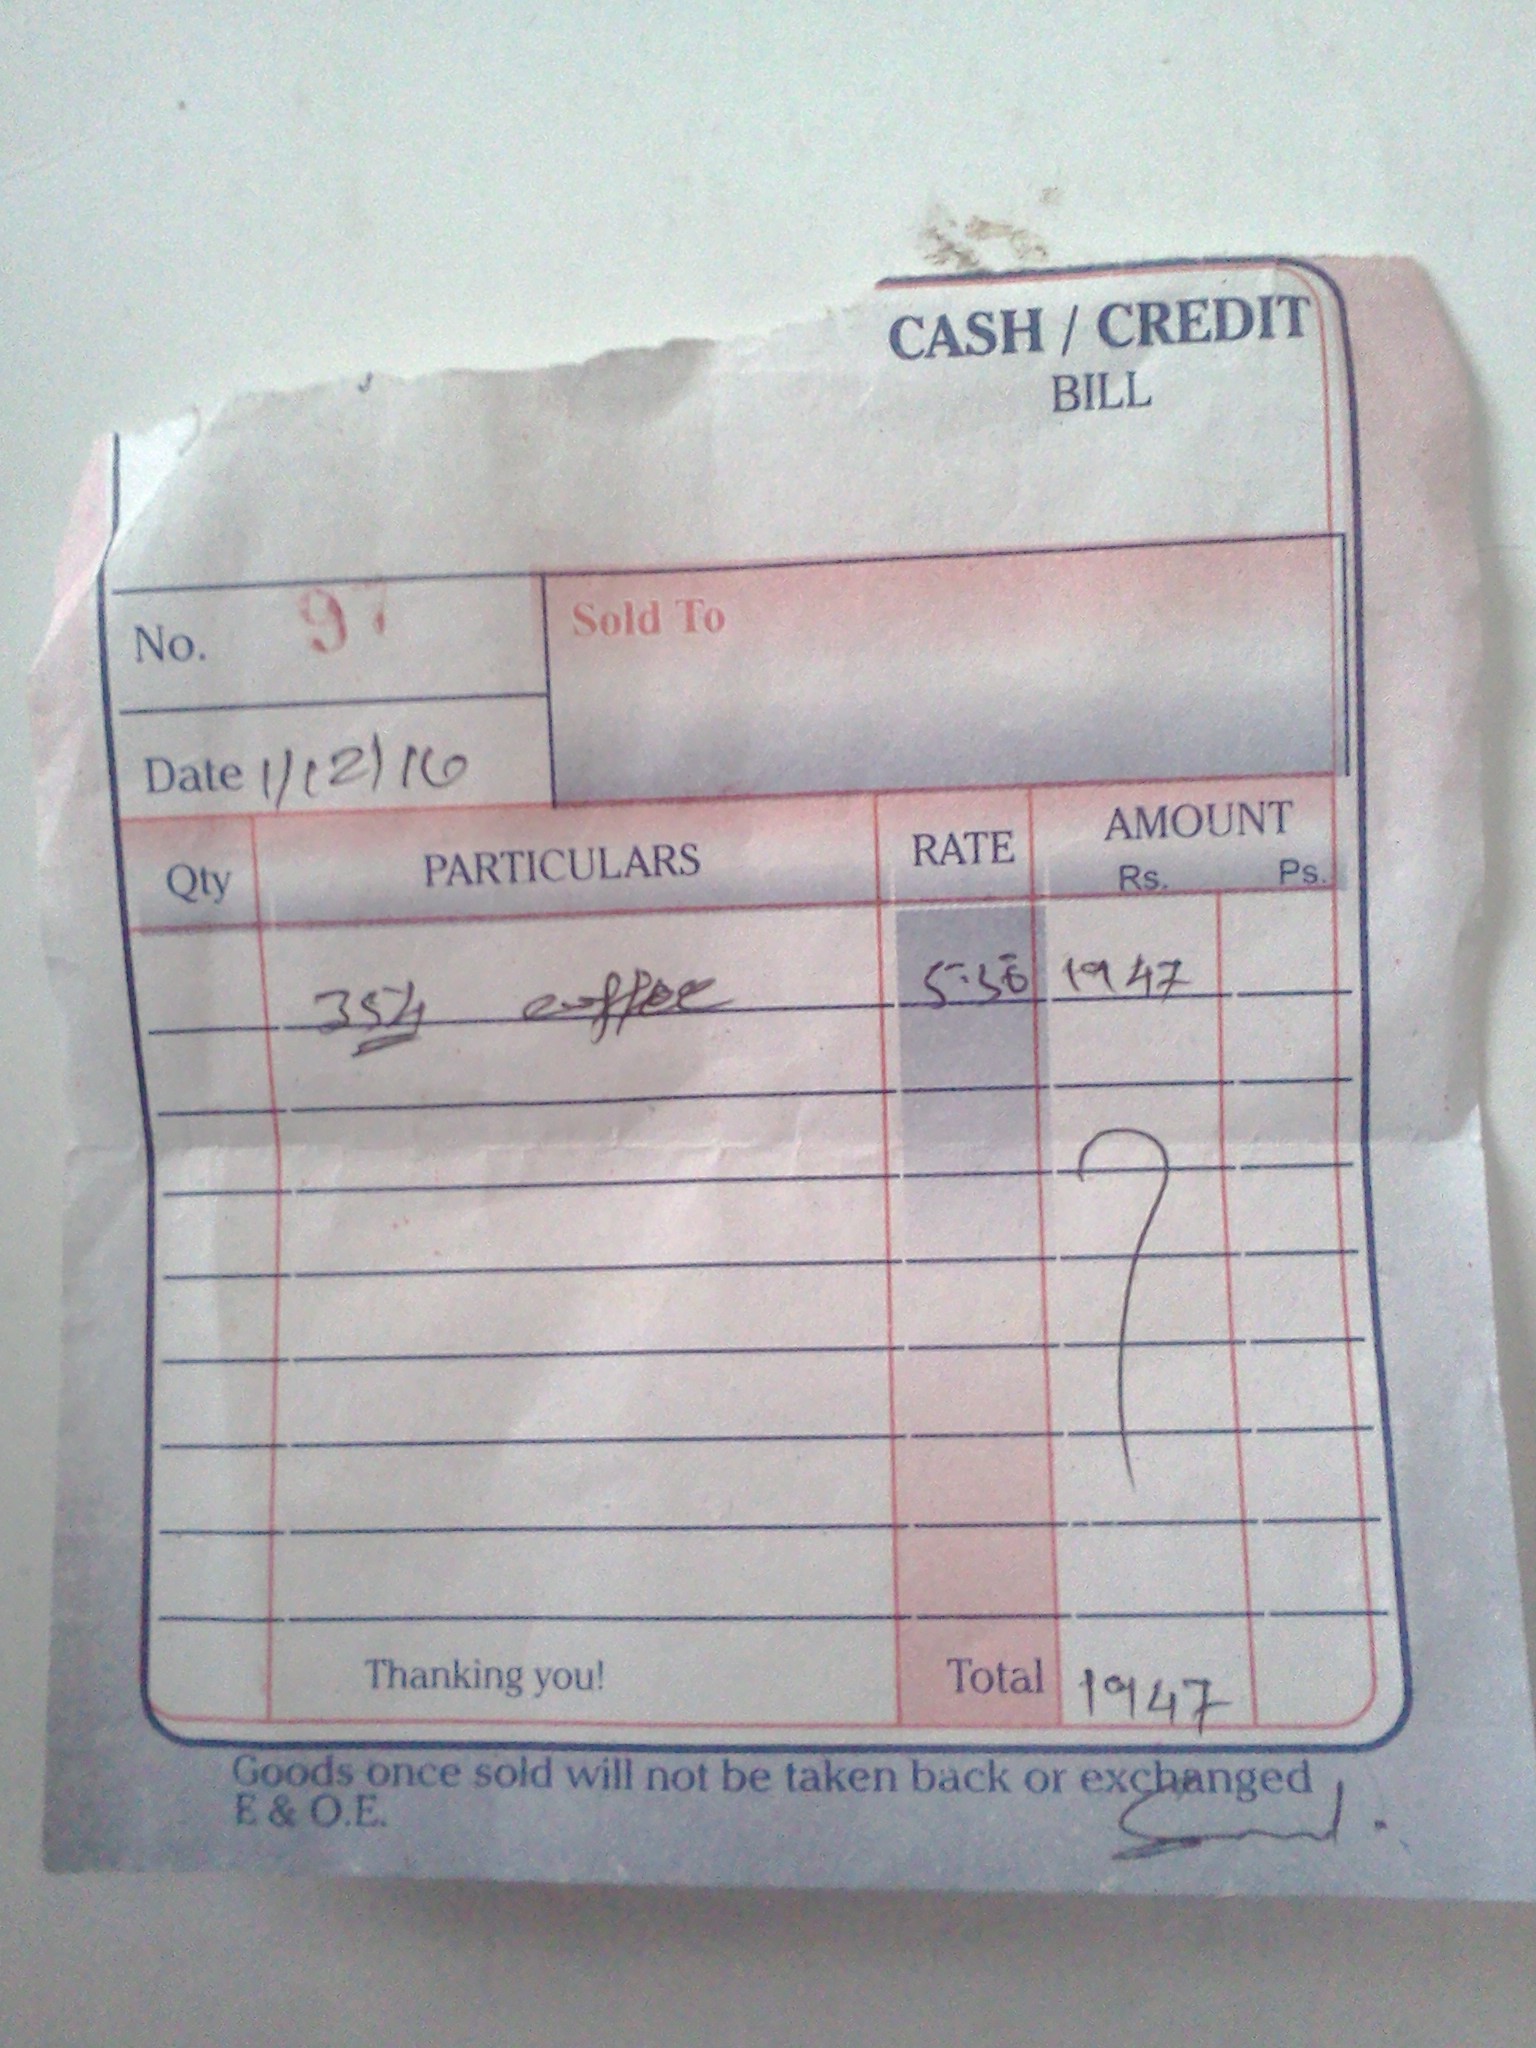 CASH / CREDIT
BILL
No. 97
Sold To
Date 1/12/16
Qty PARTICULARS RATE AMOUNT
Rs. Ps.
354 coffee 5.50 1947
Thanking you! Total 1947
Goods once sold will not be taken back or exchanged
E & O.E.